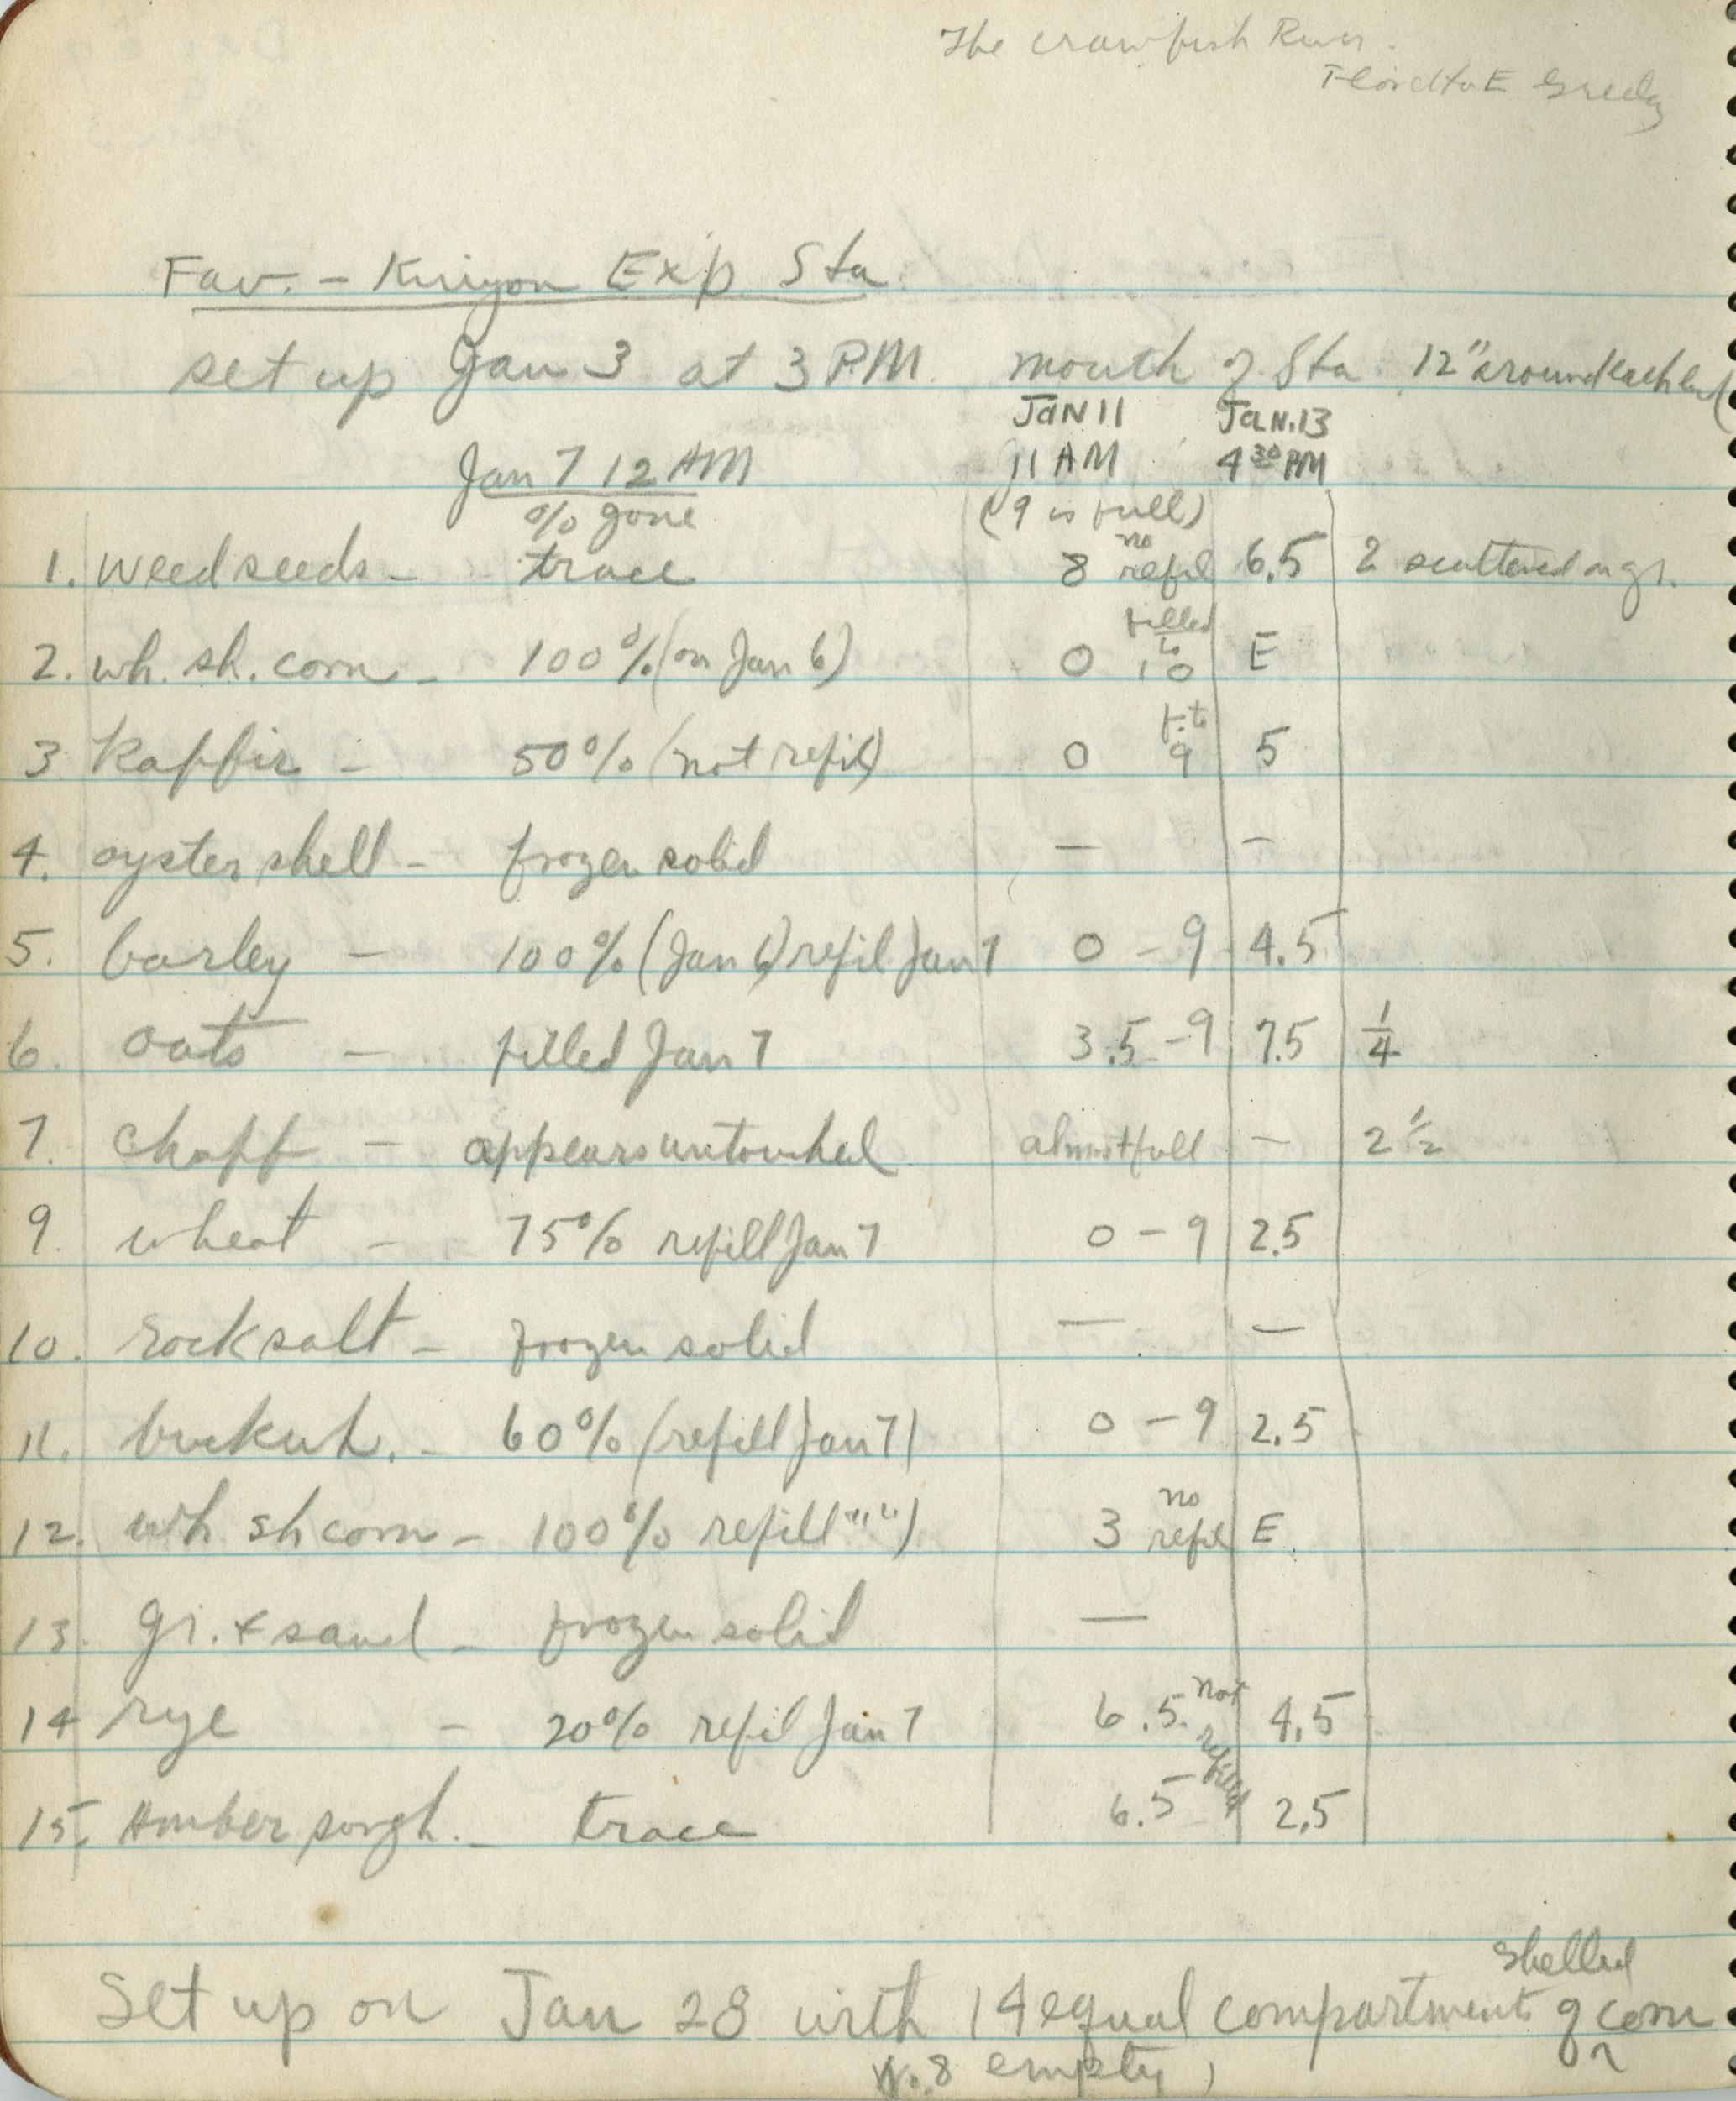 The Crawfish River.
E Greeley
Fav. - Kinyon Exp Sta.
set up Jan 3 at 3 PM mouth of Sta 12" around each
JaN 11 JaN. 13
Jan 7 12 AM 11 AM 4 30 PM
% gone (9 is full)
1. weed seeds - trace 8 no refil 6.5 2 scattered on gr.
2. wh. sh. corn - 100% (on Jan 6) 0 filled to 10 E
3 Kaffir - 50% (not refil) 0 f. to 9 5
4. oyster shell - frozen solid — -
5. barley - 100% (Jan 6) refil Jan 7 0 - 9 4.5
6. oats - filled Jan 7 3.5 - 9 7.5 1/4
7. chaff - appears untouched almost full - 2 1/2
9. wheat - 75% refill Jan 7 0 - 9 2.5
10. rock salt - frozen solid — —
11. buckwh. - 60% (refill Jan 7) 0 - 9 2.5
12. wh sh corn - 100% refill " " ) 3 no refil E.
13. gr. & sand - frozen solid —
14 rye - 20% refil Jan 7 6.5 not refilled 4.5
15. Amber sorgh. - trace 6.5 2.5
Set up on Jan 28 with 14 equal compartments of shelled corn
No. 8 empty